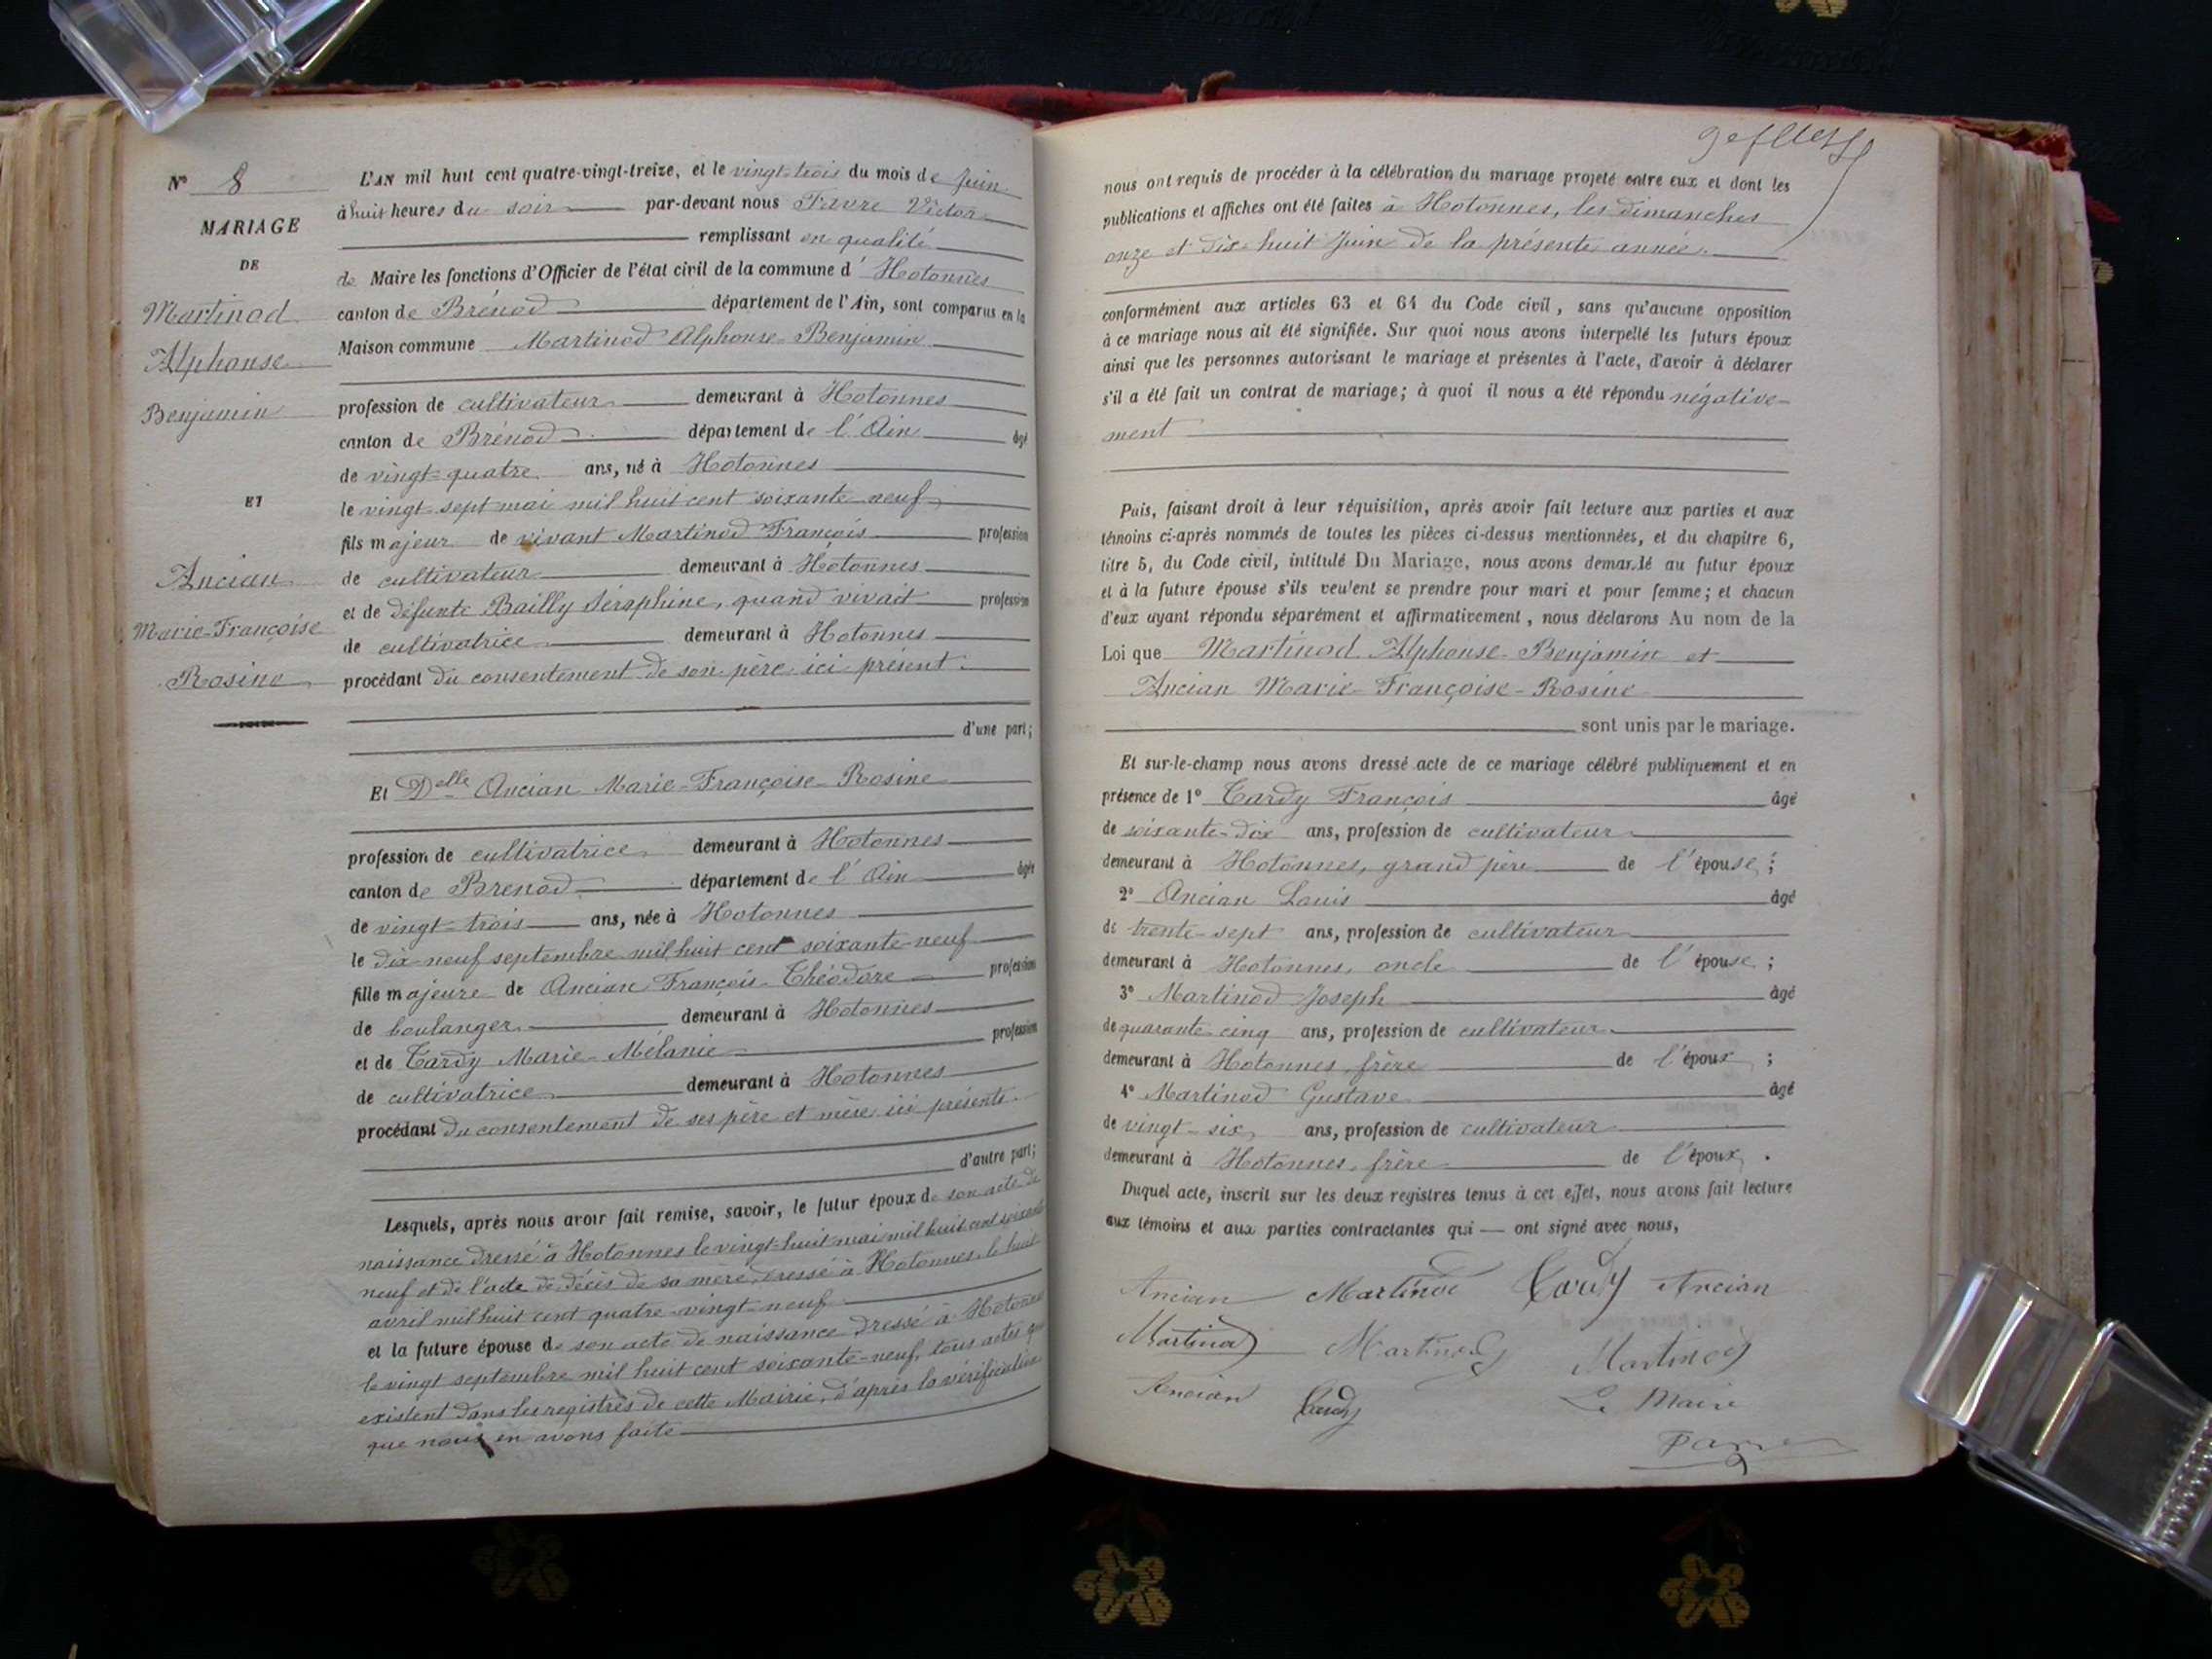 N° 8
MARIAGE
DE
Martinod
Alphonse
Benjamin
ET
Ancian
Marie-Françoise
Rosine
L'AN mil huit cent quatre-vingt-treize, et le vingt-trois du mois de Juin
à huit heures du soir par-devant nous Favre Victor
remplissant en qualité
de Maire les fonctions d'Officier de l'état civil de la commune d'Hotonnes
canton de Brénod département de l'Ain, sont comparus en la
Maison commune Martinod Alphonse-Benjamin
profession de cultivateur demeurant à Hotonnes
canton de Brénod département de l'Ain âgé
de vingt-quatre ans, né à Hotonnes
le vingt-sept mai mil huit cent soixante-neuf
fils majeur de vivant Martinod François profession
de cultivateur demeurant à Hotonnes
et de défunte Bailly Séraphine, quand vivait profession
de cultivatrice demeurant à Hotonnes
procédant du consentement de son père ici présent.
d'une part;
Et Delle Ancian Marie-Françoise-Rosine
profession de cultivatrice demeurant à Hotonnes
canton de Brenod département de l'Ain âgée
de vingt-trois ans, née à Hotonnes
le dix-neuf septembre mil huit cent soixante-neuf
fille majeure de Ancian François-Théodore profession
de boulanger demeurant à Hotonnes
et de Tardy Marie-Mélanie profession
de cultivatrice demeurant à Hotonnes
procédant du consentement de ses père et mère ici présents.
d'autre part;
Lesquels, après nous avoir fait remise, savoir, le futur époux de son acte de
naissance dressé à Hotonnes le vingt-huit mai mil huit cent soixante
neuf et de l'acte de décès de sa mère, dressé à Hotonnes, le huit
avril mil huit cent quatre-vingt-neuf
et la future épouse de son acte de naissance dressé à Hotonnes
le vingt septembre mil huit cent soixante-neuf, tous actes qui
existent dans les registres de cette Mairie, d'après la vérification
que nous en avons faite
nous ont requis de procéder à la célébration du mariage projeté entre eux et dont les
publications et affiches ont été faites à Hotonnes, les dimanches
onze et dix-huit Juin de la présente année.
conformément aux articles 63 et 64 du Code civil, sans qu'aucune opposition
à ce mariage nous ait été signifiée. Sur quoi nous avons interpellé les futurs époux
ainsi que les personnes autorisant le mariage et présentes à l'acte, d'avoir à déclarer
s'il a été fait un contrat de mariage; à quoi il nous a été répondu négative-
ment
Puis, faisant droit à leur réquisition, après avoir fait lecture aux parties et aux
témoins ci-après nommés de toutes les pièces ci-dessus mentionnées, et du chapitre 6,
titre 5, du Code civil, intitulé Du Mariage, nous avons demandé au futur époux
et à la future épouse s'ils veulent se prendre pour mari et pour femme; et chacun
d'eux ayant répondu séparément et affirmativement, nous déclarons Au nom de la
Loi que Martinod Alphonse-Benjamin et
Ancian Marie-Françoise-Rosine
sont unis par le mariage.
Et sur-le-champ nous avons dressé acte de ce mariage célébré publiquement et en
présence de 1° Tardy François âgé
de soixante-dix ans, profession de cultivateur
demeurant à Hotonnes, grand père de l'épouse;
2° Ancian Louis âgé
de trente-sept ans, profession de cultivateur
demeurant à Hotonnes, oncle de l'épouse;
3° Martinod Joseph âgé
de quarante-cinq ans, profession de cultivateur
demeurant à Hotonnes, frère de l'époux;
4° Martinod Gustave âgé
de vingt-six ans, profession de cultivateur
demeurant à Hotonnes, frère de l'époux.
Duquel acte, inscrit sur les deux registres tenus à cet effet, nous avons fait lecture
aux témoins et aux parties contractantes qui — ont signé avec nous,
Ancian Martinod Tardy Ancian
Martinod Martinod Martinod
Ancian Tardy Le Maire
Favre